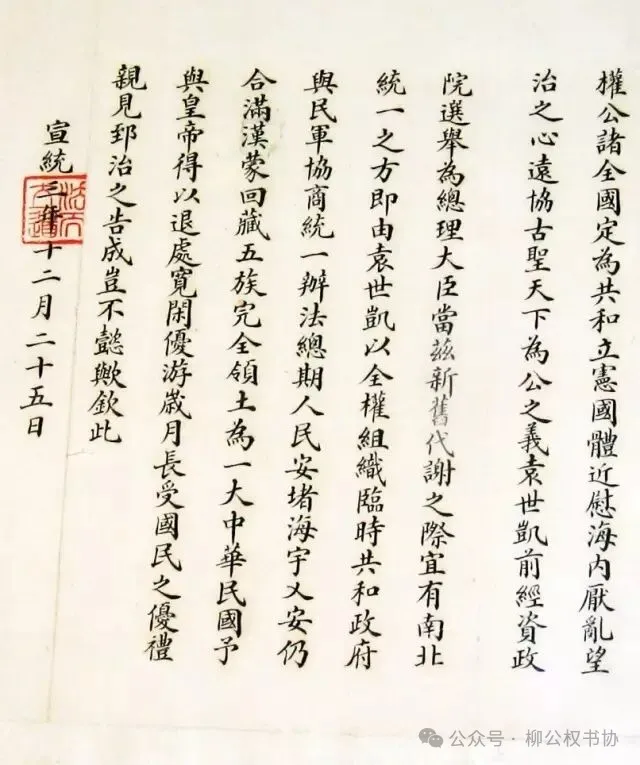 權公諸全國定為共和立憲國體近慰海內厭亂望
治之心遠協古聖天下為公之義袁世凱前經資政
院選舉為總理大臣當茲新舊代謝之際宜有南北
統一之方即由袁世凱以全權組織臨時共和政府
與民軍協商統一辦法總期人民安堵海宇乂安仍
合滿漢蒙回藏五族完全領土為一大中華民國予
與皇帝得以退處寬閑優游歲月長受國民之優禮
親見郅治之告成豈不懿歟欽此
宣統三年十二月二十五日
法天立道
公众号·柳公权书协